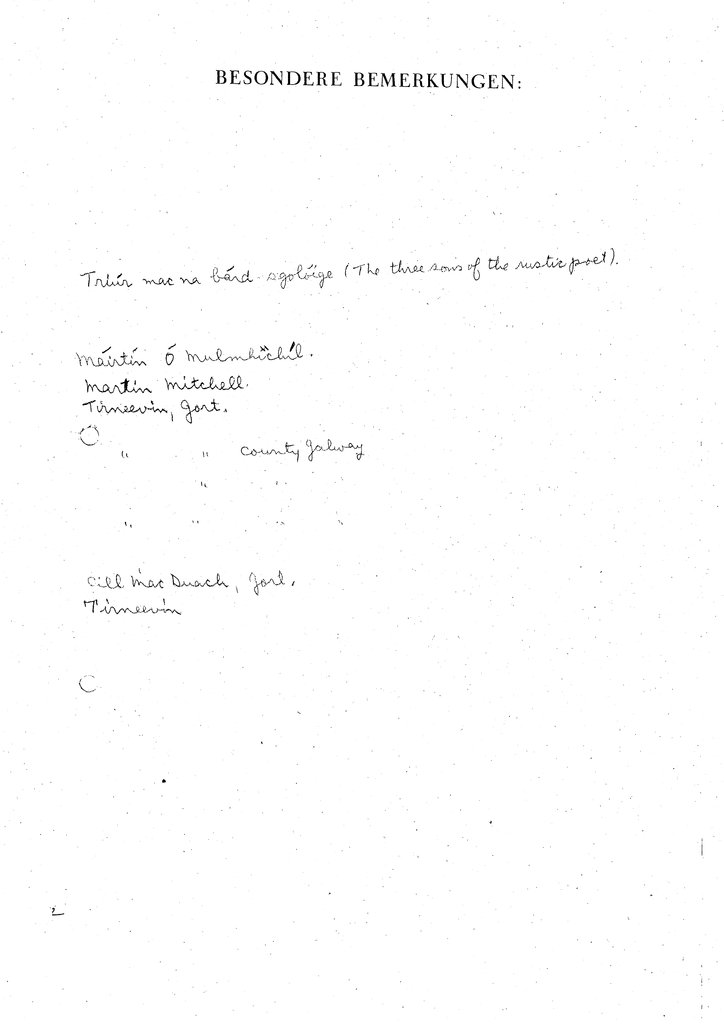 BESONDERE BEMERKUNGEN:
Triúr mac na bárd sgolóige (The three sons of the rustic poet).
Máirtín Ó
Martin Mitchell.
Tirneevin, Gort.
" " County Galway
" "
" " " "
Cill Mac Duach, Gort.
Tirneevin
2